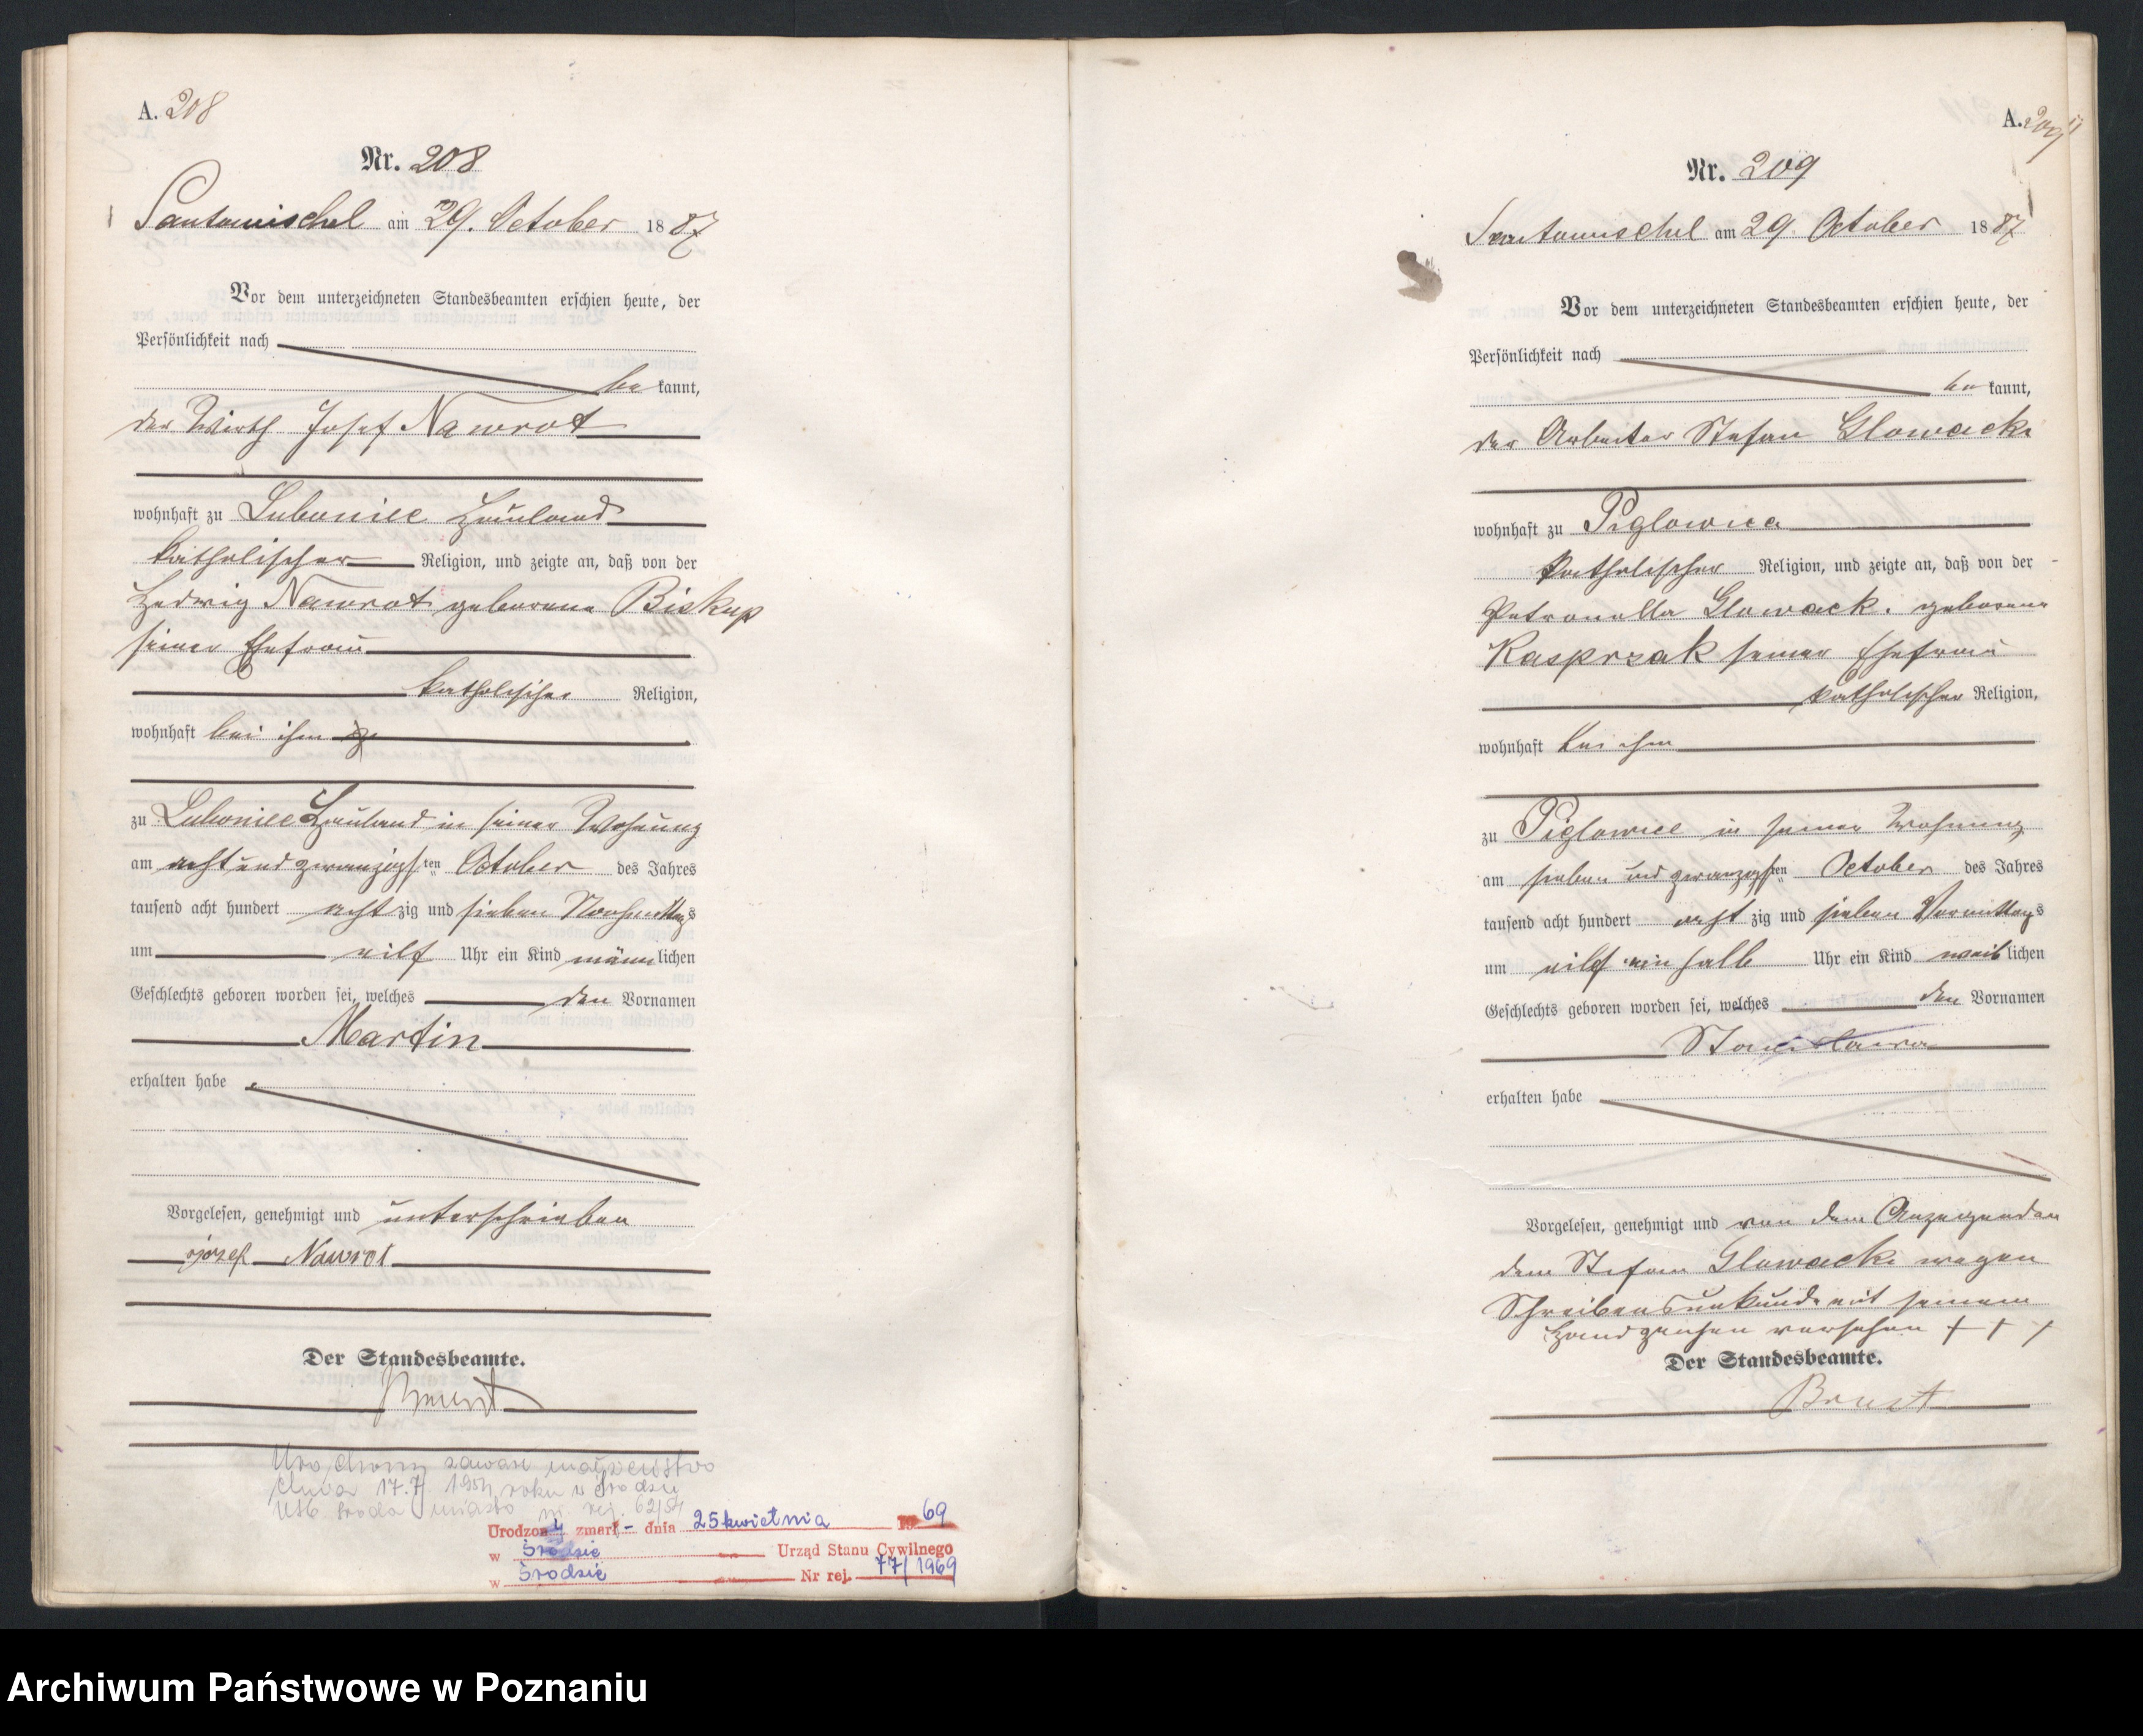 A. 208
Nr. 208
Santomischel am 29. October 1887
Vor dem unterzeichneten Standesbeamten erschien heute, der
Persönlichkeit nach
be kannt,
der Wirth Josef Nawrot
wohnhaft zu Luboniec Hauland
katholischer Religion, und zeigte an, daß von der
Hedwig Nawrot geborene Biskup
seiner Ehefrau
katholischer Religion,
wohnhaft bei ihm
zu Luboniec Hauland in seiner Wohnung
am acht und zwanzigsten October des Jahres
tausend acht hundert achtzig und sieben Nachmittags
um eilf Uhr ein Kind männlichen
Geschlechts geboren worden sei, welches den Vornamen
Martin
erhalten habe
Vorgelesen, genehmigt und unterschrieben
Józef Nawrot
Der Standesbeamte.
Brust
zawarł małżeństwo
17.7 1954 roku w Środzie
USC Środa miasto nr rej. 62/54
Urodzony zmarł - dnia 25 kwietnia 1969
w Środzie Urząd Stanu Cywilnego
w Środzie Nr rej. 77/1969
A. 209
Nr. 209
Santomischel am 29 October 1887
Vor dem unterzeichneten Standesbeamten erschien heute, der
Persönlichkeit nach
be kannt,
der Arbeiter Stefan Glowacki
wohnhaft zu Piglowice
katholischer Religion, und zeigte an, daß von der
Petronella Glowacki geborene
Kasprzak seiner Ehefrau
katholischer Religion,
wohnhaft bei ihm
zu Piglowice in seiner Wohnung
am sieben und zwanzigsten October des Jahres
tausend acht hundert achtzig und sieben Vormittags
um eilf ein halb Uhr ein Kind weiblichen
Geschlechts geboren worden sei, welches den Vornamen
Stanislawa
erhalten habe
Vorgelesen, genehmigt und von dem Anzeigenden
dem Stefan Glowacki wegen
Schreibensunkunde mit seinem
Handzeichen versehen + + +
Der Standesbeamte.
Brust
Archiwum Państwowe w Poznaniu